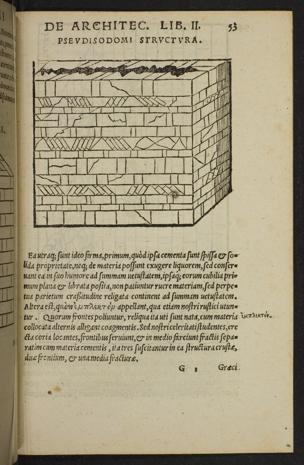 DE ARCHITEC. LIB. II. 53
PSEVDISODOMI STRVCTVRA.
Ea utraq; sunt ideo firma, primum, quòd ipsa cementa sunt spissa & so-
lida proprietate, neq; de materia possunt exugere liquorem, sed conser-
uant ea in suo humore ad summam uetustatem, ipsaq; eorum cubilia pri-
mum plana & librata posita, non patiuntur ruere materiam, sed perpe-
tua parietum crassitudine religata continent ad summam uetustatem.
Altera est, quàm ἔμπλεκτον appellant, qua etiam nostri rustici utun-
tur. Quorum frontes poliuntur, reliqua ita uti sunt nata, cum materia
collocata alternis alligant coagmentis. Sed nostri celeritati studentes, ere
cta coria locantes, frontibus seruiunt, & in medio farciunt fractis sepa-
ratim cum materia cementis, ita tres suscitantur in ea structura crustæ,
duæ frontium, & una media farcturæ.
G Græci